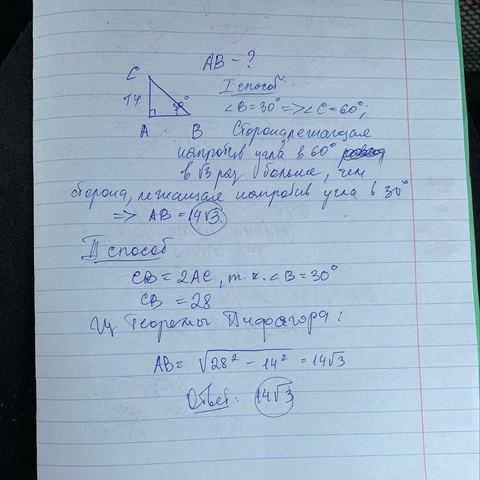 AB - ?
C
14
30°
A
B
I способ
∠B = 30° => ∠C = 60°;
Сторона, лежащая
напротив угла в 60°
в √3 раз больше, чем
сторона, лежащая напротив угла в 30°
=> AB = 14√3.
II способ
CB = 2AC, т.к. ∠B = 30°
CB = 28
Из Теоремы Пифагора:
AB = √28² - 14² = 14√3
Ответ: 14√3